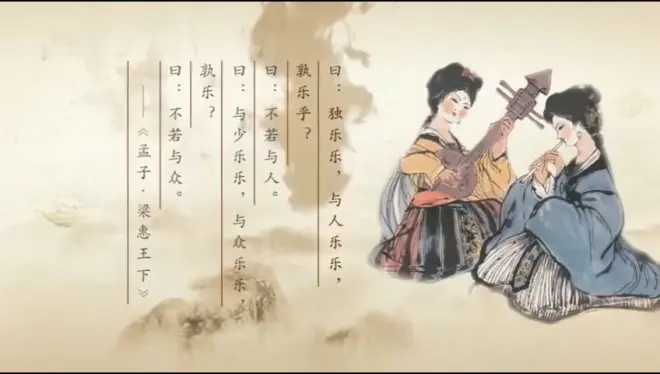 曰：独乐乐，与人乐乐，
孰乐乎？
曰：不若与人。
曰：与少乐乐，与众乐乐，
孰乐？
曰：不若与众。
——《孟子·梁惠王下》